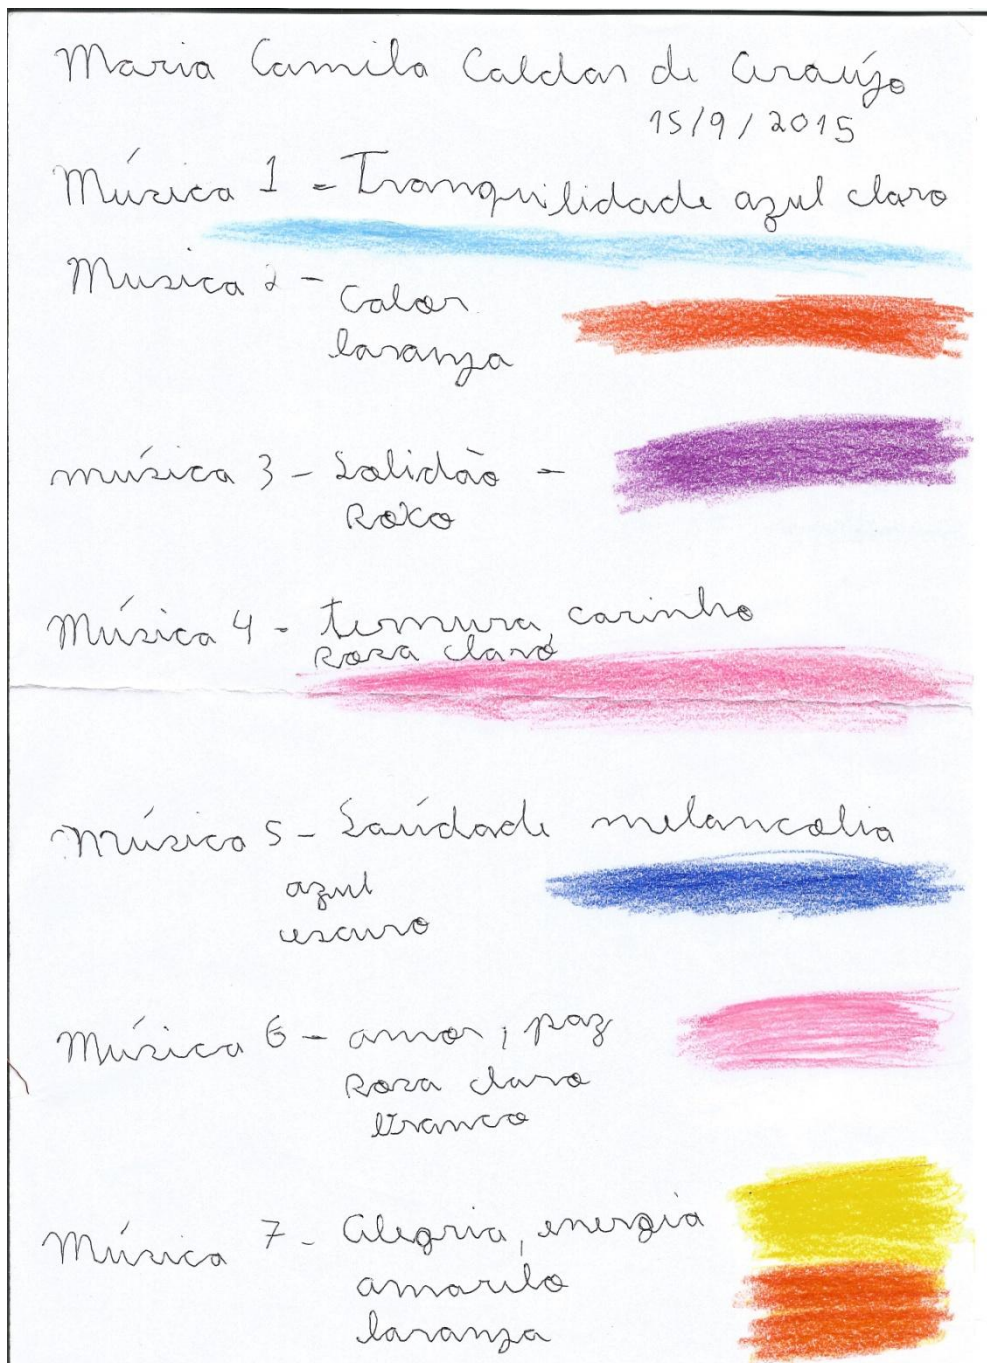 Maria Camila Caldas de Araújo
15/9/2015
Música 1 - Tranquilidade azul claro
Musica 2 - Calor
laranja
música 3 - Solidão -
Roxo
Música 4 - ternura, carinho
Rosa claro
Música 5 - Saúdade melancolia
azul
escuro
Música 6 - amor, paz
Rosa claro
Branco
Música 7 - Alegria, energia
amarelo
laranja